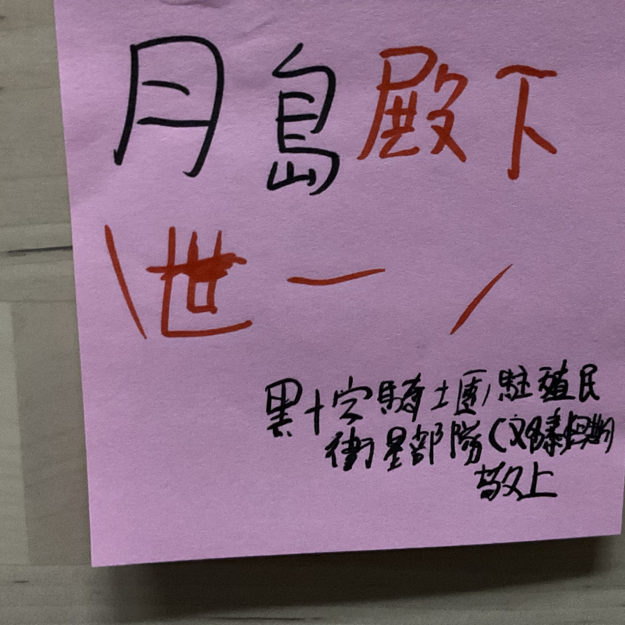 月島殿下
\世一/
黑十字騎士團駐殖民
衛星部隊(
敬上